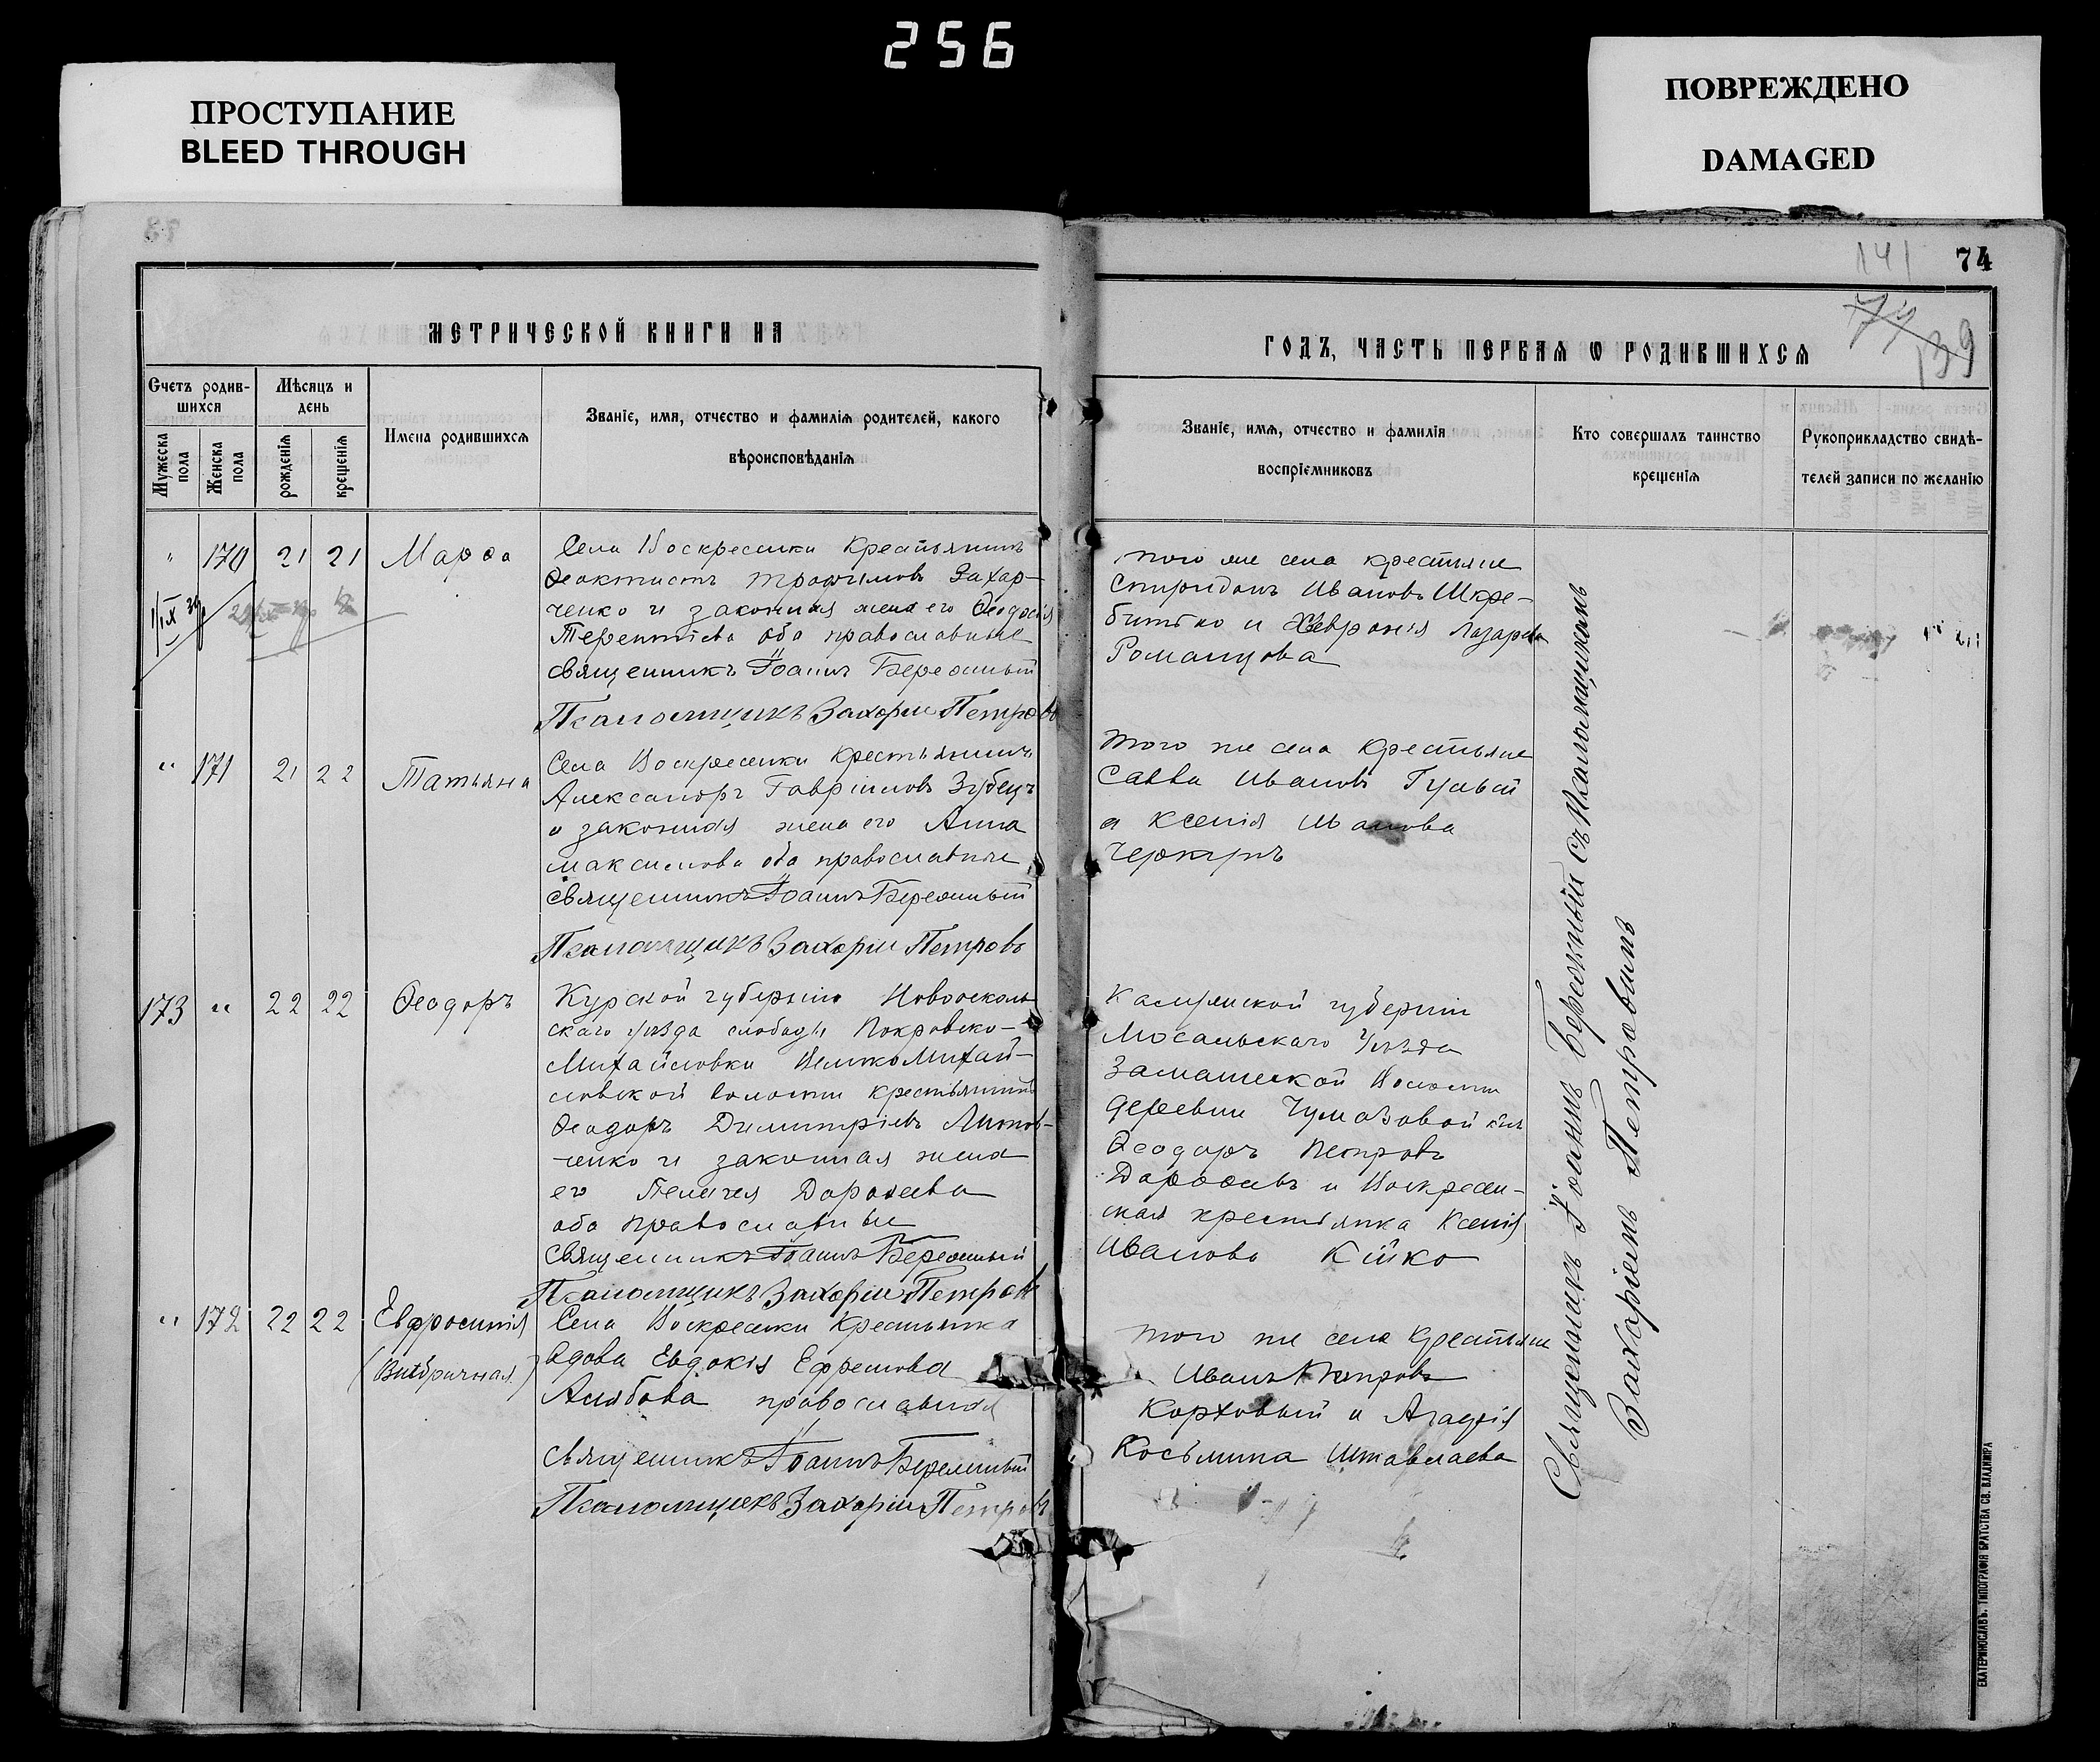 256
ПРОСТУПАНИЕ
BLEED THROUGH
ПОВРЕЖДЕНО
DAMAGED
МЕТРИЧЕСКОЙ КНИГИ НА
Счетъ родив-
шихся
Мѣсяцъ и
день
Мужеска
пола
Женска
пола
рожденія
крещенія
Имена родившихся
Званіе, имя, отчество и фамилія родителей, какого
вѣроисповѣданія
" 170 21 21 Марѳа
Села Воскресенки Крестьянинъ
Ѳеоктистъ Трофимовъ Захар-
ченко и законная жена его Ѳеодосія
Терентіева оба православные
Священникъ Іоаннъ Бережный
Псаломщикъ Захарій Петровъ
" 171 21 22 Татьяна
Села Воскресенки Крестьянинъ
Александръ Гавріиловъ Зубецъ
и законная жена его Анна
Максимова оба православные
Священникъ Іоаннъ Бережный
Псаломщикъ Захарій Петровъ
173 " 22 22 Ѳеодоръ
Курской губерніи Новоосколь
скаго уѣзда слободы Покровско-
Михайловки Велико Михай-
ловской волости крестьянинъ
Ѳеодоръ Димитріевъ Литов-
ченко и законная жена
его Пелагея Дороѳеева
оба православные
Священникъ Іоаннъ Бережный
Псаломщикъ Захарій Петровъ
" 172 22 22 Евфросинія
(Внѣбрачная)
Села Воскресенки Крестьянка
вдова Евдокія Ефремова
православная
Священникъ Іоаннъ Бережный
Псаломщикъ Захарій Петровъ
141
74
74
139
ГОДЪ, ЧАСТЬ ПЕРВАЯ Ѡ РОДИВШИХСЯ
Званіе, имя, отчество и фамилія
воспріемниковъ
Кто совершалъ таинство
крещенія
Рукоприкладство свидѣ-
телей записи по желанію
того же села крестьяне
Спиридонъ Ивановъ Шкре-
битко и Хевронія Лазарева
Романцова
того же села Крестьяне
Савва Ивановъ Гулый
и Ксенія Иванова
Калужской губерніи
Мосальскаго Уѣзда
Волости
деревни Чумазовой
Ѳеодоръ Петровъ
Дороѳеевъ и Воскресен-
ская крестьянка Ксенія
Иванова Кійко
того же села Крестьяне
Иванъ Петровъ
Корховый и
Косьмина Штавлаева
Священникъ Іоаннъ Бережный съ Псаломщикомъ
Захаріемъ Петровымъ
ЕКАТЕРИНОСЛАВЪ. ТИПОГРАФІЯ БРАТСТВА СВ. ВЛАДИМІРА